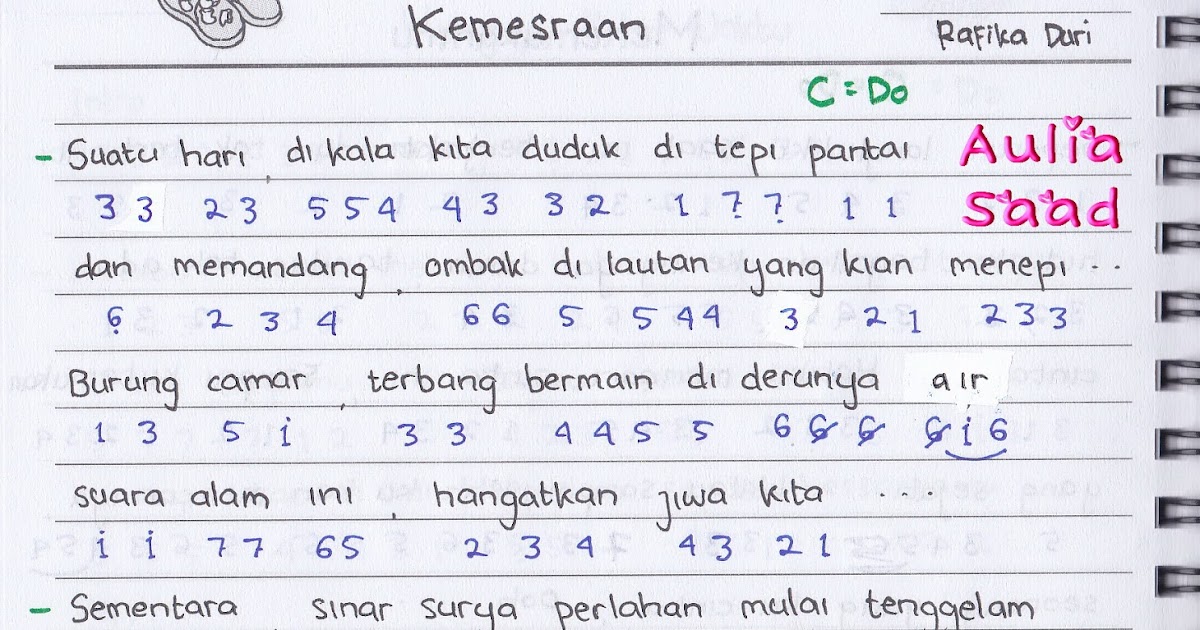 Kemesraan
Rafika Duri
C = Do
Aulia
Saad
- Suatu hari, di kala kita duduk di tepi pantai
3 3 2 3 5 5 4 4 3 3 2 1 7̣ 7̣ 1 1
dan memandang, ombak di lautan yang kian menepi ..
6̣ 2 3 4 6 6 5 5 4 4 3 2 1 2 3 3
Burung camar, terbang bermain di derunya air
1 3 5 i 3 3 4 4 5 5 6 6̸ 6̸ 6̸ i 6
suara alam ini, hangatkan jiwa kita ...
i i 7 7 6 5 2 3 4 4 3 2 1
- Sementara sinar surya perlahan mulai tenggelam